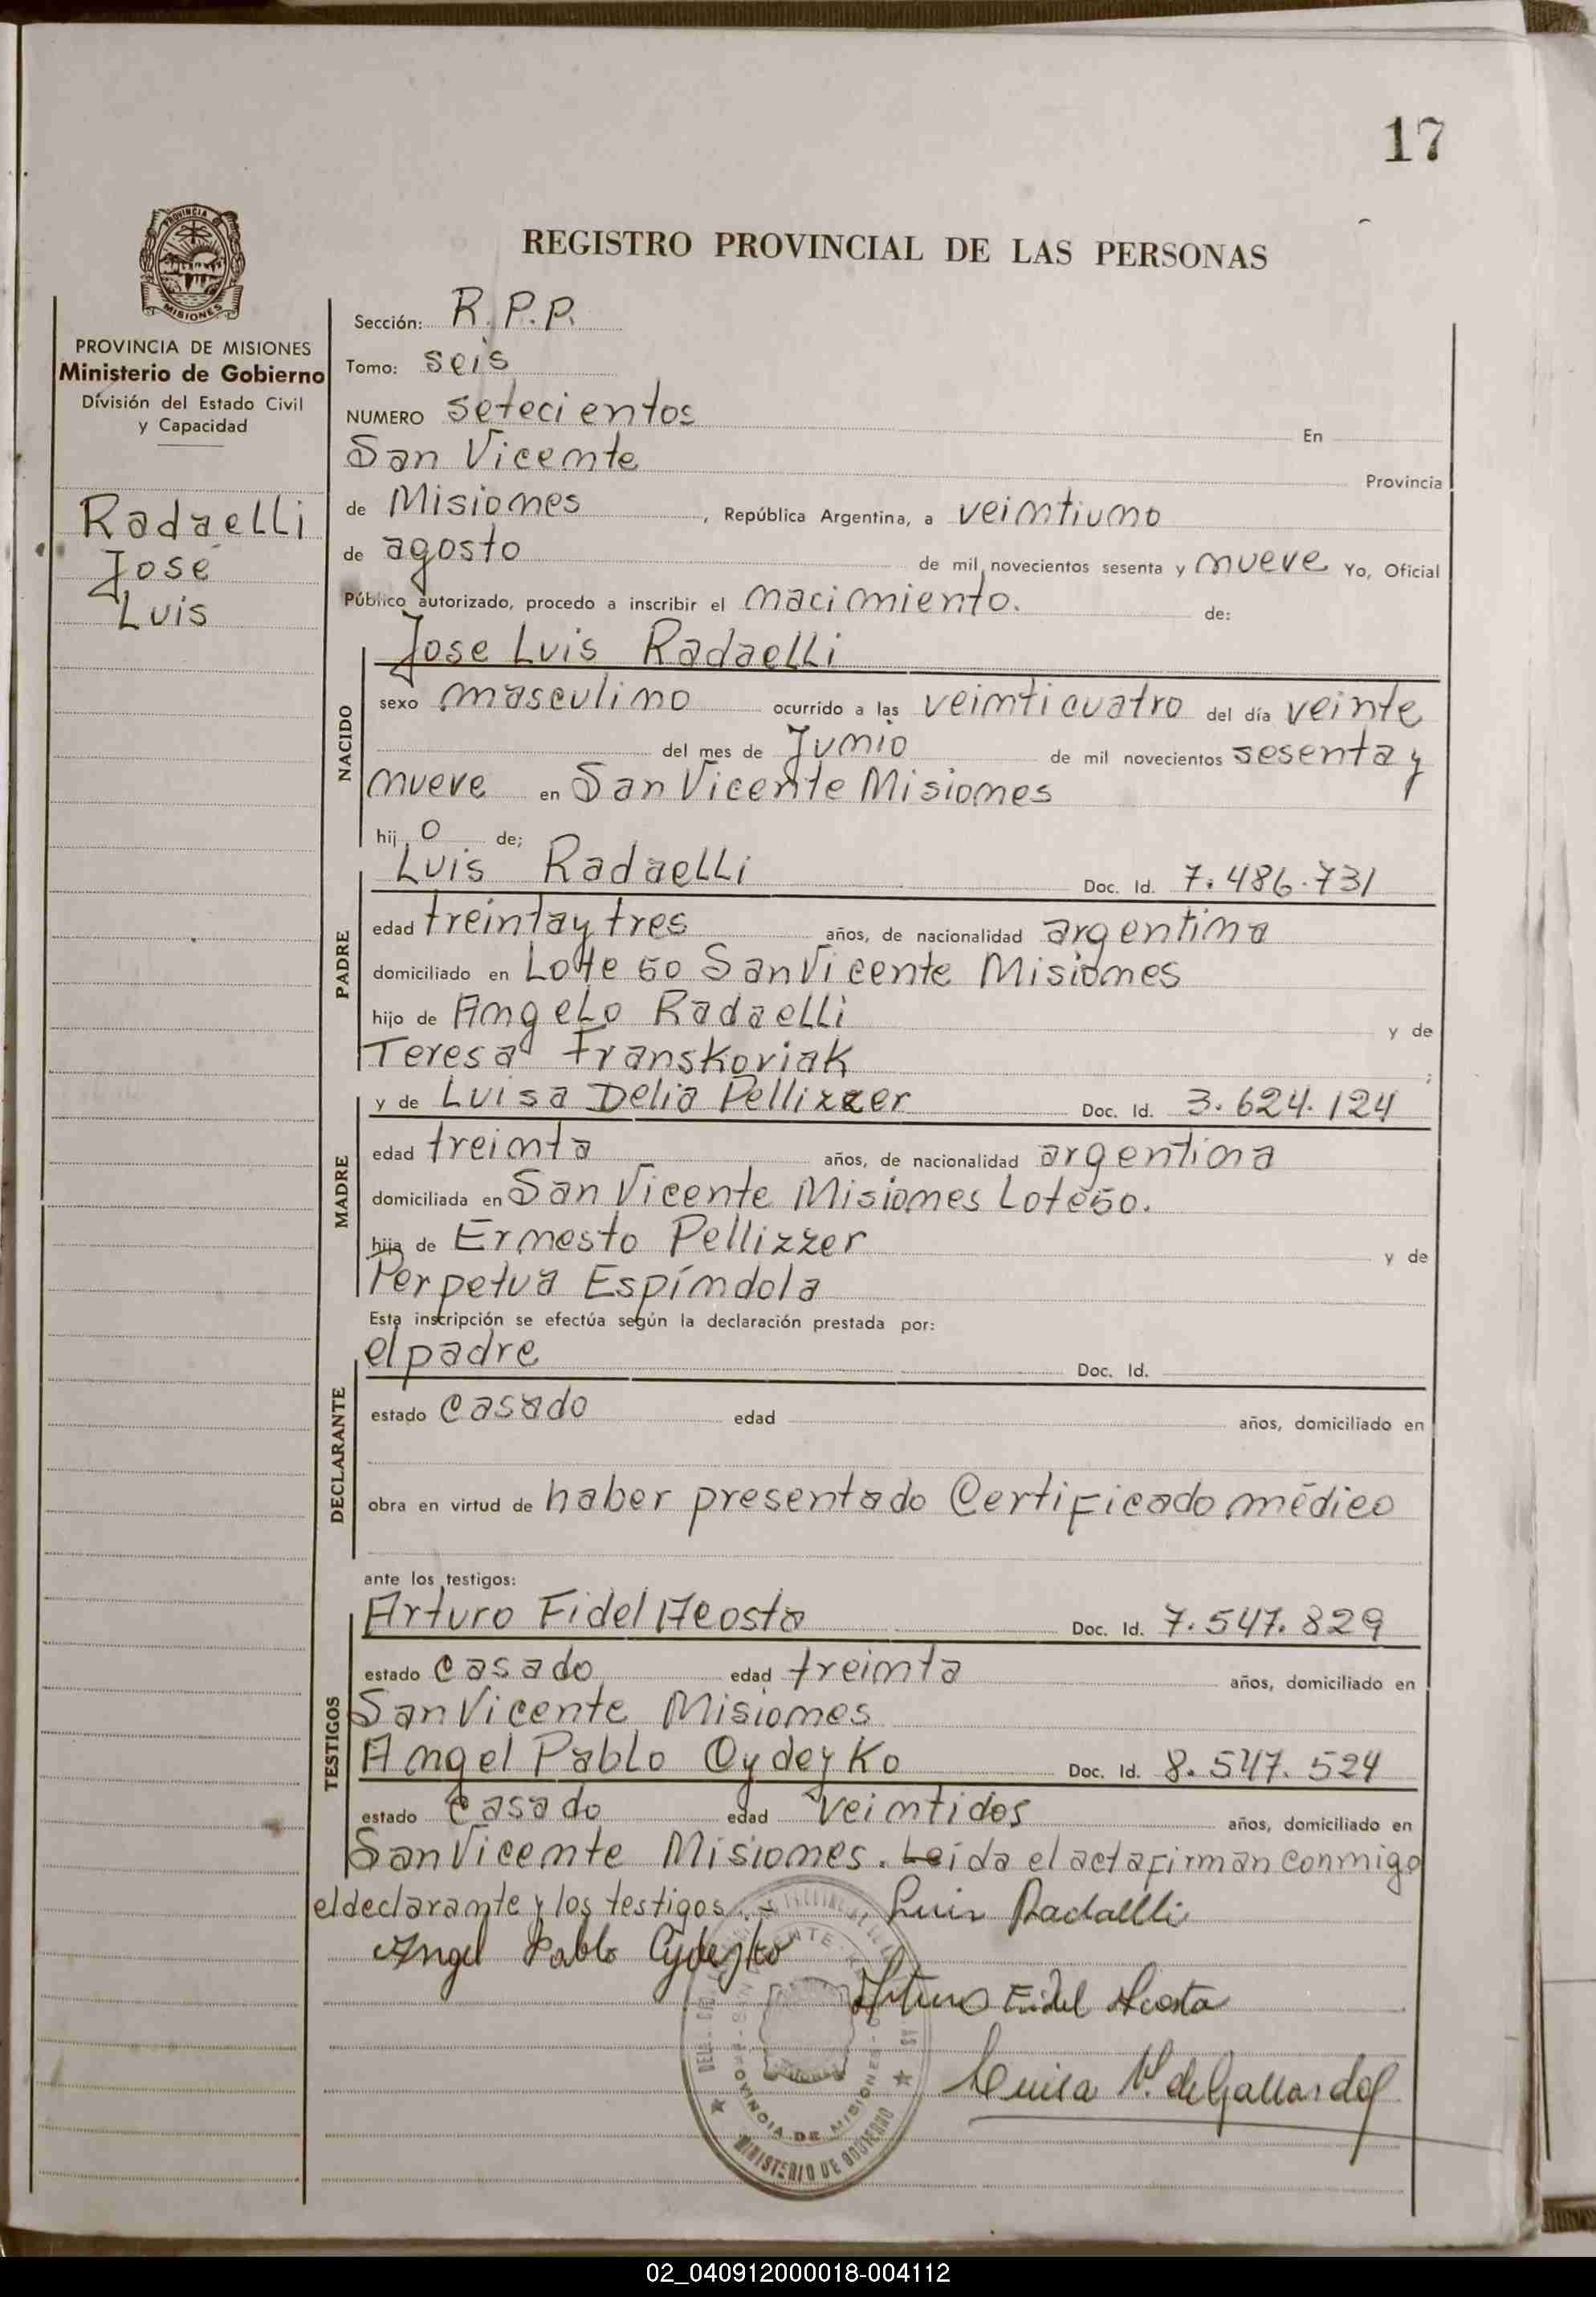 17
PROVINCIA
MISIONES
REGISTRO PROVINCIAL DE LAS PERSONAS
PROVINCIA DE MISIONES
Ministerio de Gobierno
División del Estado Civil
y Capacidad
Radaelli
José
Luis
Sección: R. P. P.
Tomo: seis
NUMERO setecientos En
San Vicente Provincia
de Misiones, República Argentina, a veintiuno
de agosto de mil novecientos sesenta y nueve Yo, Oficial
Público autorizado, procedo a inscribir el nacimiento. de:
NACIDO
Jose Luis Radaelli
sexo masculino ocurrido a las veinticuatro del día veinte
del mes de Junio de mil novecientos sesenta y
nueve en San Vicente Misiones
hijo de;
PADRE
Luis Radaelli Doc. Id. 7.486.731
edad treinta y tres años, de nacionalidad argentina
domiciliado en Lote 60 San Vicente Misiones
hijo de Angelo Radaelli y de
Teresa Franskoviak ;
MADRE
y de Luisa Delia Pellizzer Doc. Id. 3.624.124
edad treinta años, de nacionalidad argentina
domiciliada en San Vicente Misiones Lote 60.
hija de Ernesto Pellizzer y de
Perpetua Espíndola
Esta inscripción se efectúa según la declaración prestada por:
DECLARANTE
el padre Doc. Id.
estado casado edad años, domiciliado en
obra en virtud de haber presentado Certificado médico
ante los testigos:
TESTIGOS
Arturo Fidel Acosta Doc. Id. 7.547.829
estado casado edad treinta años, domiciliado en
San Vicente Misiones
Angel Pablo Oydeyko Doc. Id. 8.547.524
estado casado edad veintidos años, domiciliado en
San Vicente Misiones. Leída el acta firman conmigo
el declarante y los testigos.
Luis Radaelli
Angel Pablo Oydeyko
Arturo Fidel Acosta
Luisa V. de Gallardo
PROVINCIA DE MISIONES
MINISTERIO DE GOBIERNO
02_040912000018-004112